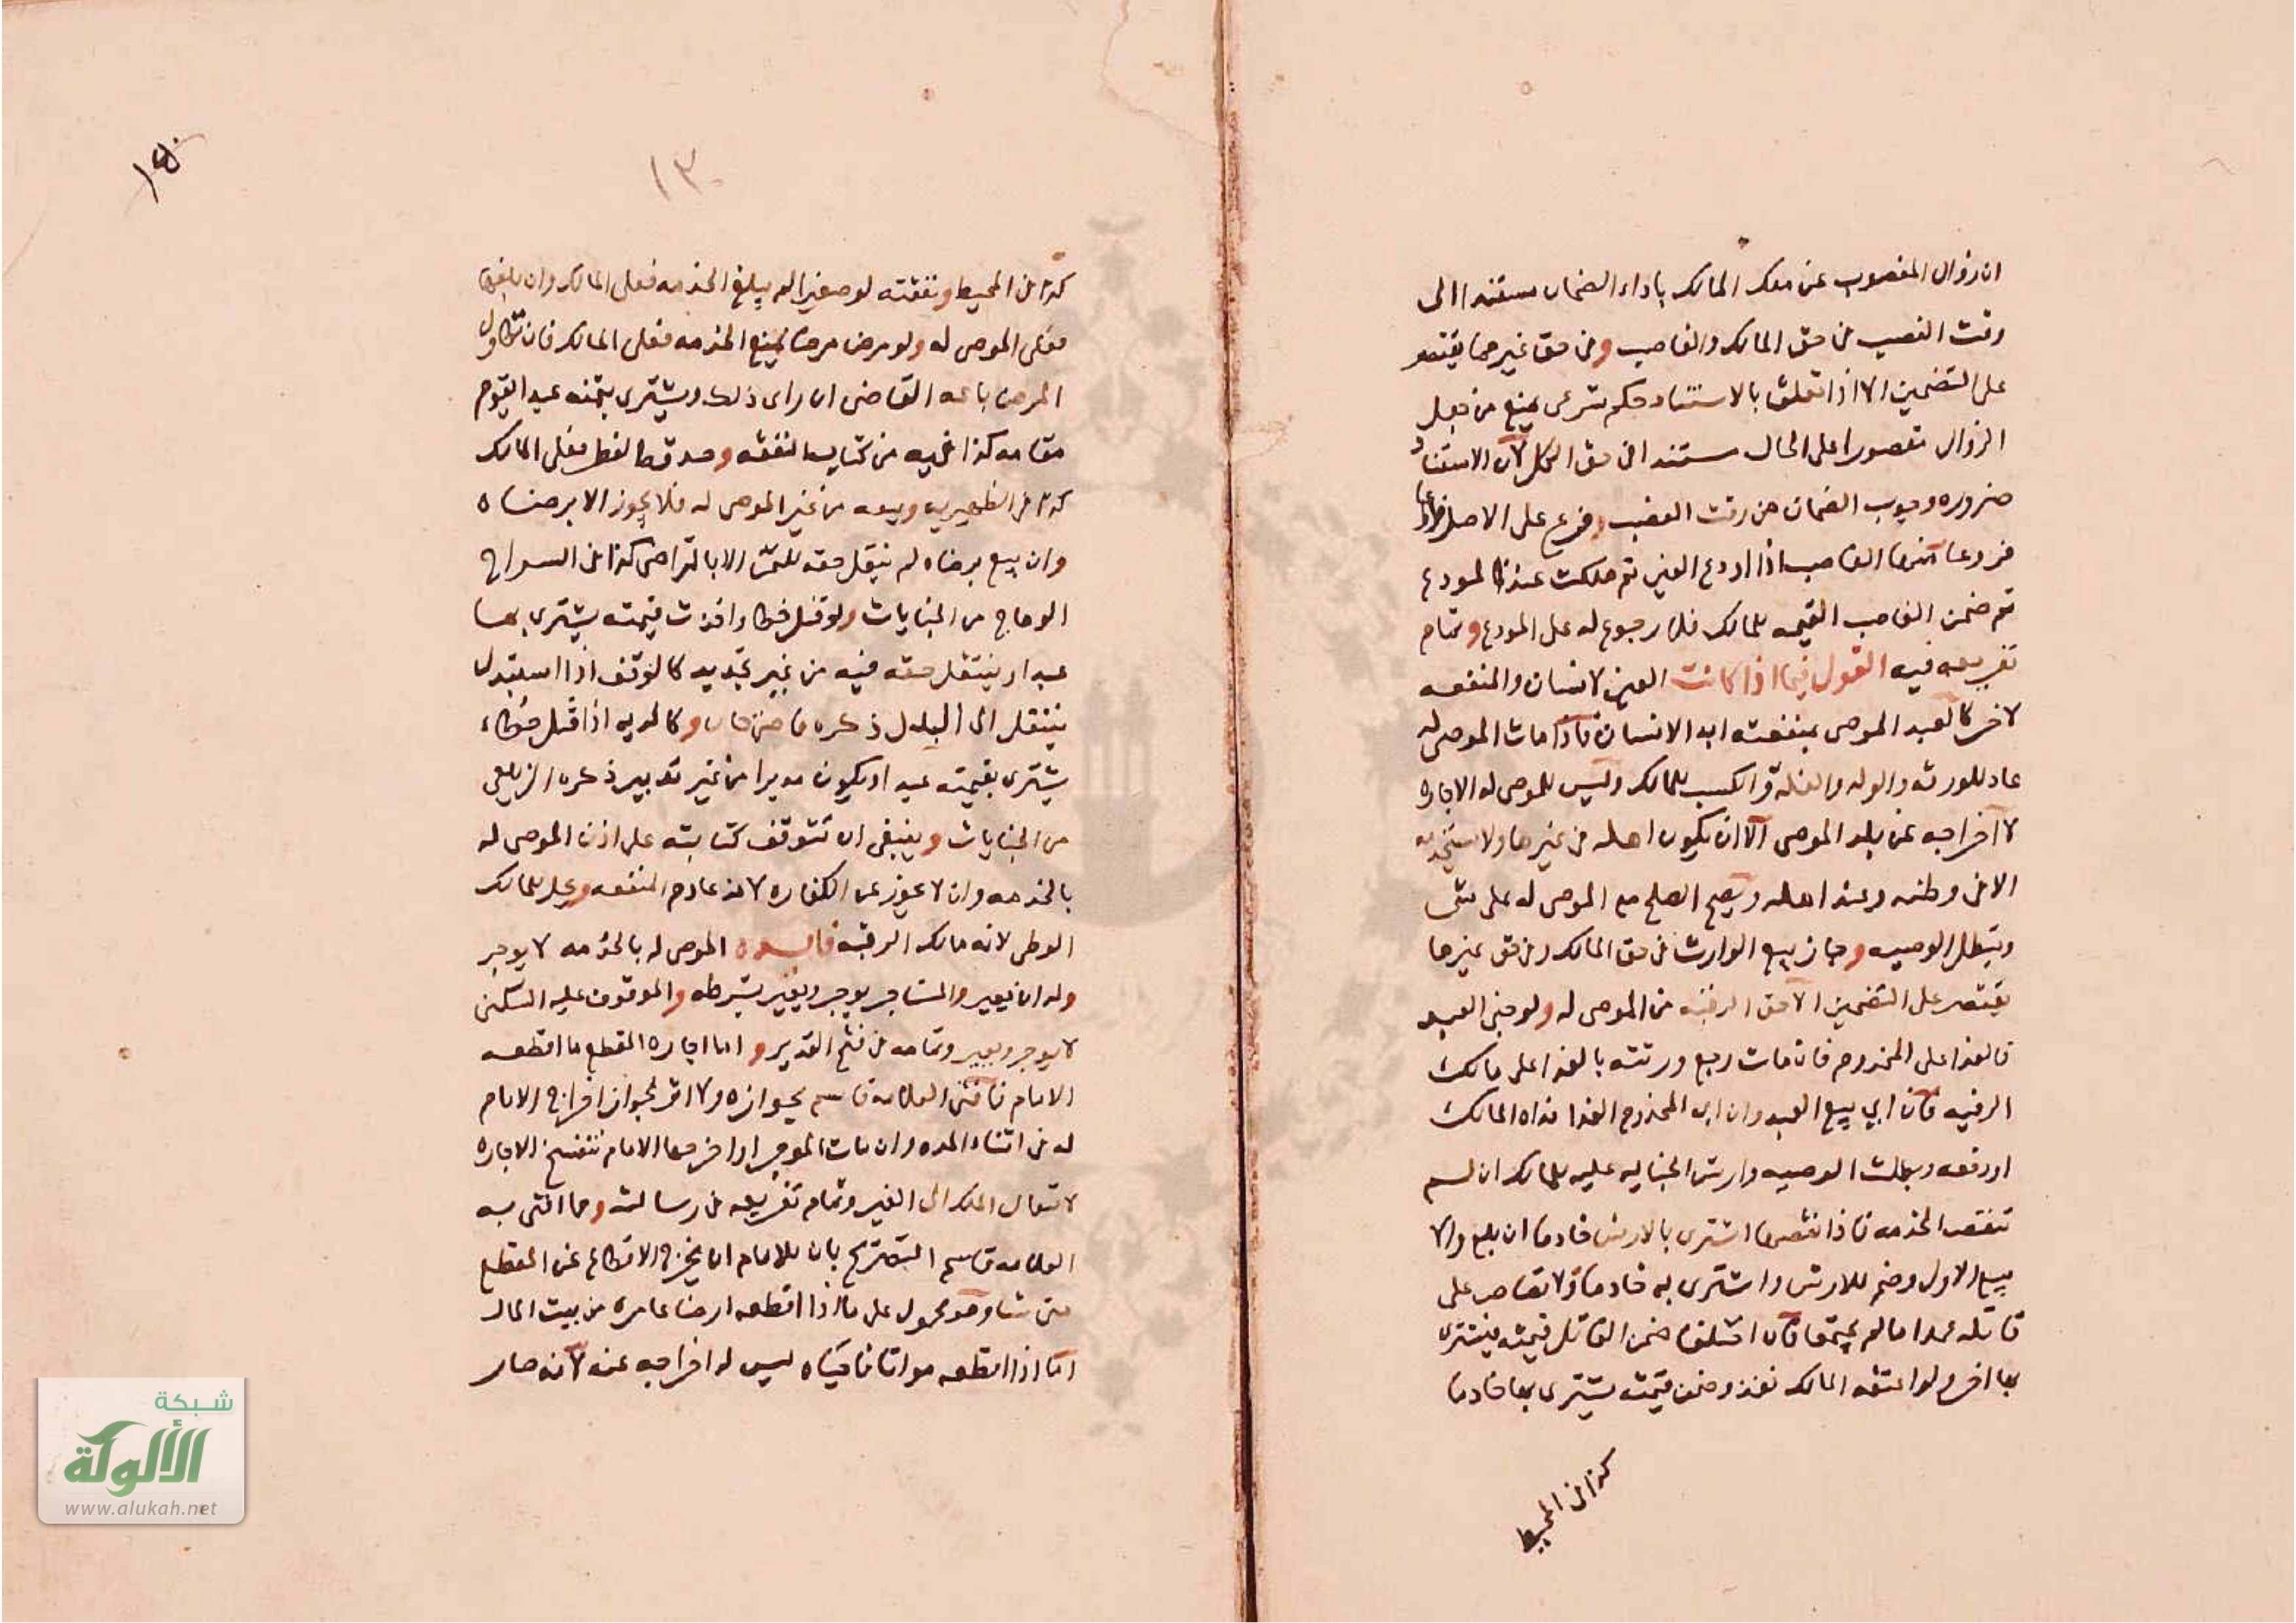 ان زوال المغصوب عن ملك المالك باداء الضمان مستندا الى
وقت الغصب في حق المالك والغاصب وفي حق غيرهما يقتصر
على التضمين الا اذا تعلق بالاستناد حكم شرعي يمنع من جعل
الزوال مقصورا على الحال مستندا في حق الكل لان الاستناد
ضروره وجوب الضمان من وقت الغصب وفرع على الاصل
فروعا منها الغاصب اذا اودع العين ثم هلكت عند المودع
ثم ضمن الغاصب القيمه للمالك فلا رجوع له على المودع وتمام
تفريعه فيه القول فيما اذا كانت العين لانسان والمنفعه
لاخر كالعبد الموصى بمنفعته ابدا لانسان فاذا مات الموصى له
عاد للورثه والولد والغله والكسب للمالك وليس للموصى له الاجاره
لا اخراجه عن بلد الموصى الا ان يكون اهله في غيرها ولا يستخدمه
الا في وطنه وعند اهله ويصح الصلح مع الموصى له على شي
وتبطل الوصيه وجاز بيع الوارث في حق المالك وفي حق غيرها
يقتصر على التضمين الا حق الرقبه من الموصى له ولو جنى العبد
فالفدا على المخدوم فان مات رجع ورثته بالفدا على مالك
الرقبه فان ابى بيع العبد وان ابى المخدوم الفدا فداه المالك
او دفعه وبطلت الوصيه وارش الجنايه عليه للمالك ان لم
تنقص الخدمه فاذا نقصها اشترى بالارش خادما ان بلغ والا
بيع الاول وضم للارش واشترى به خادما ولا قصاص على
قاتله عمدا ما لم يجتمعا فان اختلفا ضمن القاتل قيمته يشترى
بها اخر ولو اعتقه المالك نفذ وضمن قيمته يشترى بها خادما
كذا في المحيط
١٣٠
كذا في المحيط ونفقته لو صغيرا لم يبلغ الخدمه فعلى المالك وان بلغها
فعلى الموصى له ولو مرض مرضا يمنع الخدمه فعلى المالك فان تطاول
المرض باعه القاضي ان راى ذلك ويشترى بثمنه عبدا يقوم
مقامه كذا فيه من كتاب النفقه وصدقه الفطر فعلى المالك
كذا في الظهيريه وبيعه من غير الموصى له فلا يجوز الا برضاه
وان بيع برضاه لم ينتقل حقه للثمن الا بالتراضي كذا في السراج
الوهاج من الجنايات ولو قتل خطا واخذت قيمته يشترى بها
عبدا وينتقل حقه فيه من غير تجديد كالوقف اذا استبدل
ينتقل الى البدل ذكره قاضي خان وكالمدبر اذا قتل خطاء
يشترى بقيمته عبد او يكون مدبرا من غير تدبير ذكره الزيلعي
من الجنايات وينبغي ان تتوقف كتابته على اذن الموصى له
بالخدمه وان لا يجوز عن الكفاره لانه عادم المنفعه وحل للمالك
الوطى لانه مالك الرقبه فايده الموصى له بالخدمه لا يوجر
وله ان يعير والمستاجر يوجر ويعير بشرطه والموقوف عليه السكنى
لا يوجر ويعير وتمامه في فتح القدير واما اجاره المقطع ما اقطعه
الامام فافتى العلامه قاسم بجوازه ولا اثر لجواز اخراج الامام
له في اثناء المده وان مات الموجر او اخرجها الامام تنفسخ الاجاره
لانتقال الملك الى الغير وتمام تفريعه في رسالته وما افتى به
العلامه قاسم التصريح بان للامام ان يخرج الاقطاع عن المقطع
متى شا وهو محمول على ما اذا اقطعه ارضا عامره من بيت المال
اما اذا اقطعه مواتا فاحياه ليس له اخراجه عنه لانه صار
شبكة
الألوكة
www.alukah.net